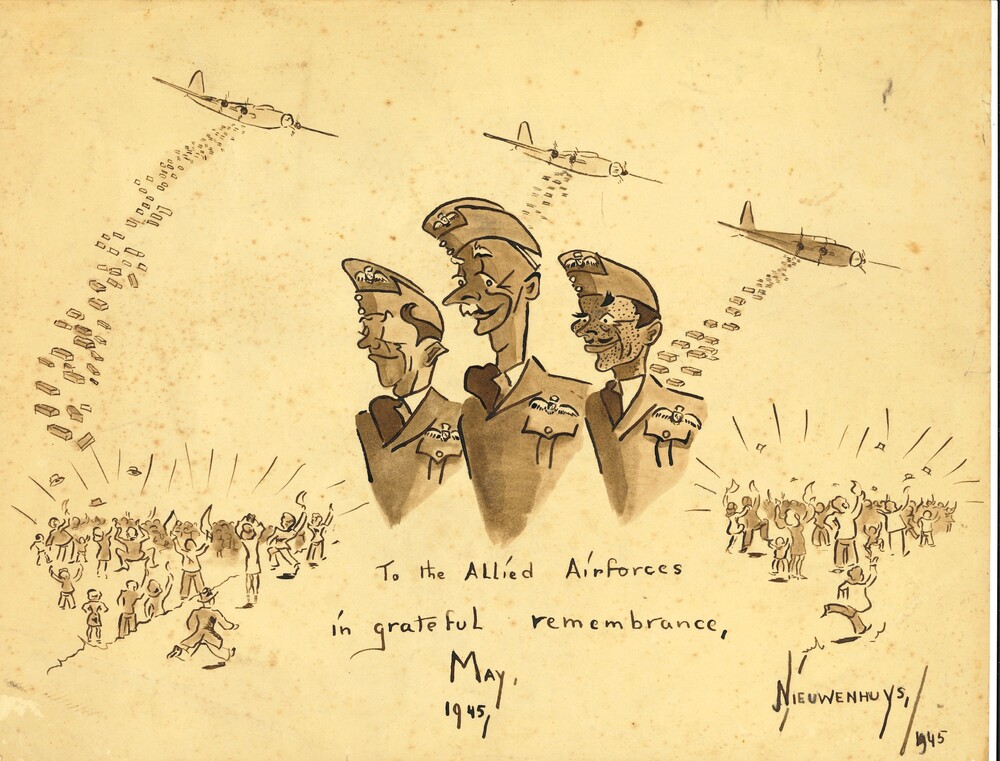 To the Allied Airforces
in grateful remembrance,
May,
1945,
Nieuwenhuys,
1945